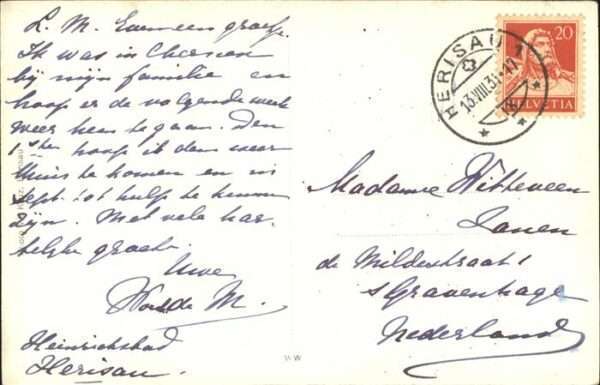 L. M. Even een groetje.
Ik was in
bij mijn familie en
hoop er de volgende week
weer heen te gaan. Den
1sten hoop ik dan weer
thuis te komen en in
Sept. tot hulp te kunnen
zijn. Met vele har-
telijke groeten
Uwe
M.
Heinrichsbad
Herisau.
HERISAU 1
13.VIII.31
20
HELVETIA
Madame Witteveen
de Mildestraat 1
s Gravenhage
Nederland